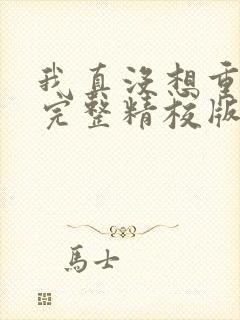 我真没想重
完整精校版
馬士